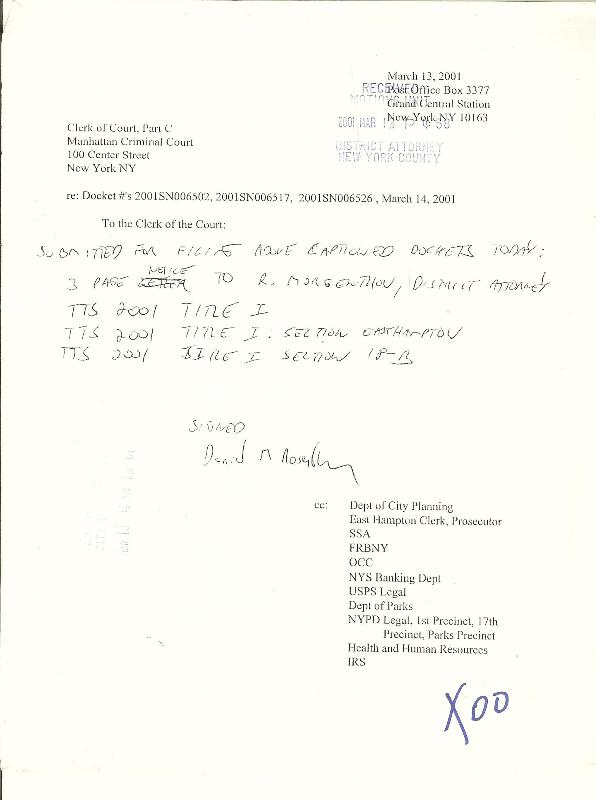 March 13, 2001
Post Office Box 3377
Grand Central Station
New York NY 10163
RECEIVED
MOTIONS UNIT
2001 MAR 13
DISTRICT ATTORNEY
NEW YORK COUNTY
Clerk of Court, Part C
Manhattan Criminal Court
100 Center Street
New York NY
re: Docket #'s 2001SN006502, 2001SN006517, 2001SN006526 , March 14, 2001
To the Clerk of the Court:
SUBMITTED FOR FILING ABOVE CAPTIONED DOCKETS TODAY:
NOTICE
3 PAGE LETTER TO R. MORGENTHOU, DISTRICT ATTORNEY
TTS 2001 TITLE I
TTS 2001 TITLE I: SECTION EASTHAMPTON
TTS 2001 TITLE I SECTION 18-B
SIGNED
Daniel M
cc: Dept of City Planning
East Hampton Clerk, Prosecutor
SSA
FRBNY
OCC
NYS Banking Dept
USPS Legal
Dept of Parks
NYPD Legal, 1st Precinct, 17th
Precinct, Parks Precinct
Health and Human Resources
IRS
X00